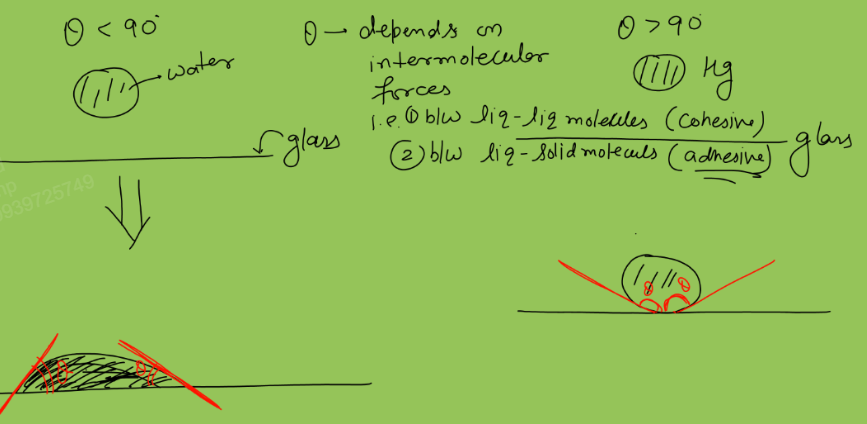 θ < 90°
water
glass
θ → depends on
intermolecular
forces
i.e. ① b/w liq-liq molecules (cohesive)
② b/w liq-solid moleculs (adhesive)
θ > 90
Hg
glass
np
9939725749
θ θ
θ θ